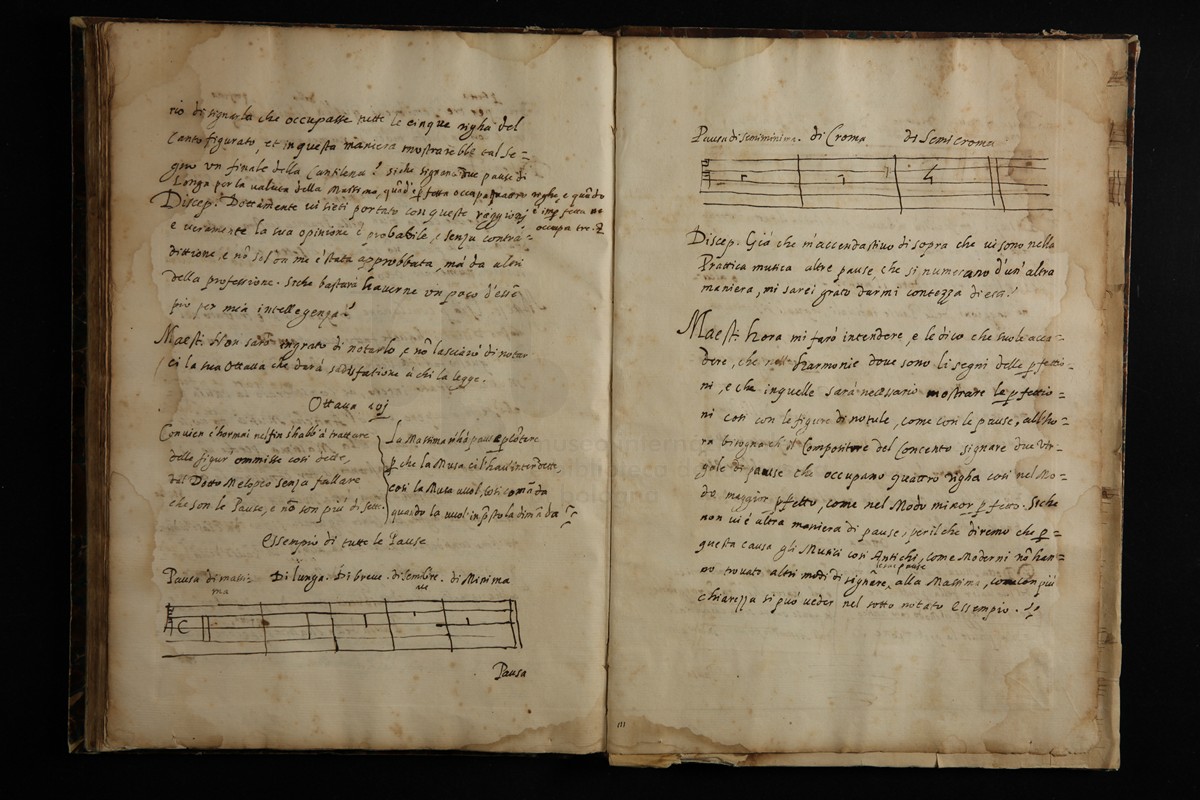 rio di signarla che occupasse tutte le cinque righa del
Canto figurato, et in questa maniera mostrarebbe tal se=
gno un finale della Cantilena! siche signano due pause di
Longa per la valuta della Massima, quãd'è pfetta occupa quattro righe, e quãdo
è impfetta ne
occupa tre.
Discep. Dottamente vi sieti portato con queste raggioni
e veramente la sua opinione è probabile, e senza contra=
dittione, e nõ sol da me è stata approbbata, mà da altri
della professione. Siche bastarà haverne un poco d'essẽ
pio per mia intelligenza!
Maest. Non sarò ingrato di notarlo, e nõ lasciarò di notar
ci la sua Ottava che darà sadisfatione à chi la legge.
Ottava
Convien c'hormai nel fin s'habb'à trattare
delle figur ommisse così dette,
dal Dotto Melopeo senza fallare
che son le Pause, e nõ son più di sette.
La Massima nõ hà pausa
p che la Musa ci l'hau'interdette,
così la Musa vuol, così comãda
quando la vuol in pusto la dimãda
Essempio di tutte le Pause
Pausa di massi= Di lunga. Di breve. di semibre. di Minima
ma ve
Pausa
Pausa di semiminima. di Croma di Semicroma
Discep. Già che m'accendastivo di sopra che vi sono nella
Prattica musica altre pause che si numerano d'un'altra
maniera, mi sarei grato darmi contezza di esse!
Maest. hora mi farò intendere, e le dico che suole acca=
dere, che nelle harmonie dove sono li segni delle pfettio=
ni, e che in quelle sarà necessario mostrare le pfettio=
ni così con le figure di notule, come con le pause, all'ho=
ra bisogna ch'il Compositore del Concento signare due vir=
gole di pause che occupano quattro righa così nel Mo=
do maggior pfetto, come nel Modo minor pfetto. Siche
non vi è altra maniera di pause, perilche diremo che p
questa causa gli Musici così Antichi, come Moderni nõ han=
no trovato altri modi di signare le sue pause alla Massima, come con più
chiarezza si può veder nel sotto notato essempio.